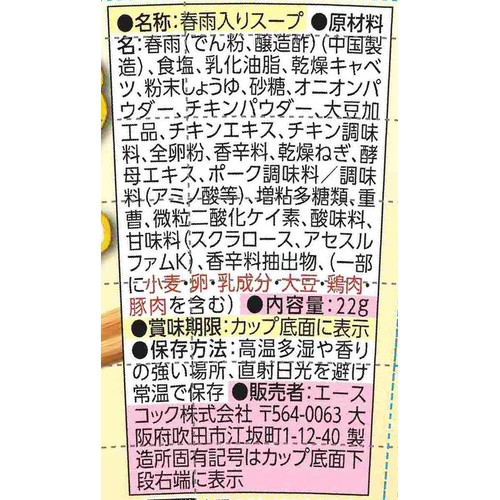 ●名称:春雨入りスープ ●原材料
名:春雨(でん粉、醸造酢)(中国製
造)、食塩、乳化油脂、乾燥キャベ
ツ、粉末しょうゆ、砂糖、オニオンパ
ウダー、チキンパウダー、大豆加
工品、チキンエキス、チキン調味
料、全卵粉、香辛料、乾燥ねぎ、酵
母エキス、ポーク調味料/調味
料(アミノ酸等)、増粘多糖類、重
曹、微粒二酸化ケイ素、酸味料、
甘味料(スクラロース、アセスル
ファムK)、香辛料抽出物、(一部
に小麦・卵・乳成分・大豆・鶏肉・
豚肉を含む) ●内容量:22g
●賞味期限:カップ底面に表示
●保存方法:高温多湿や香り
の強い場所、直射日光を避け
常温で保存 ●販売者:エース
コック株式会社 〒564-0063 大
阪府吹田市江坂町1-12-40 製
造所固有記号はカップ底面下
段右端に表示